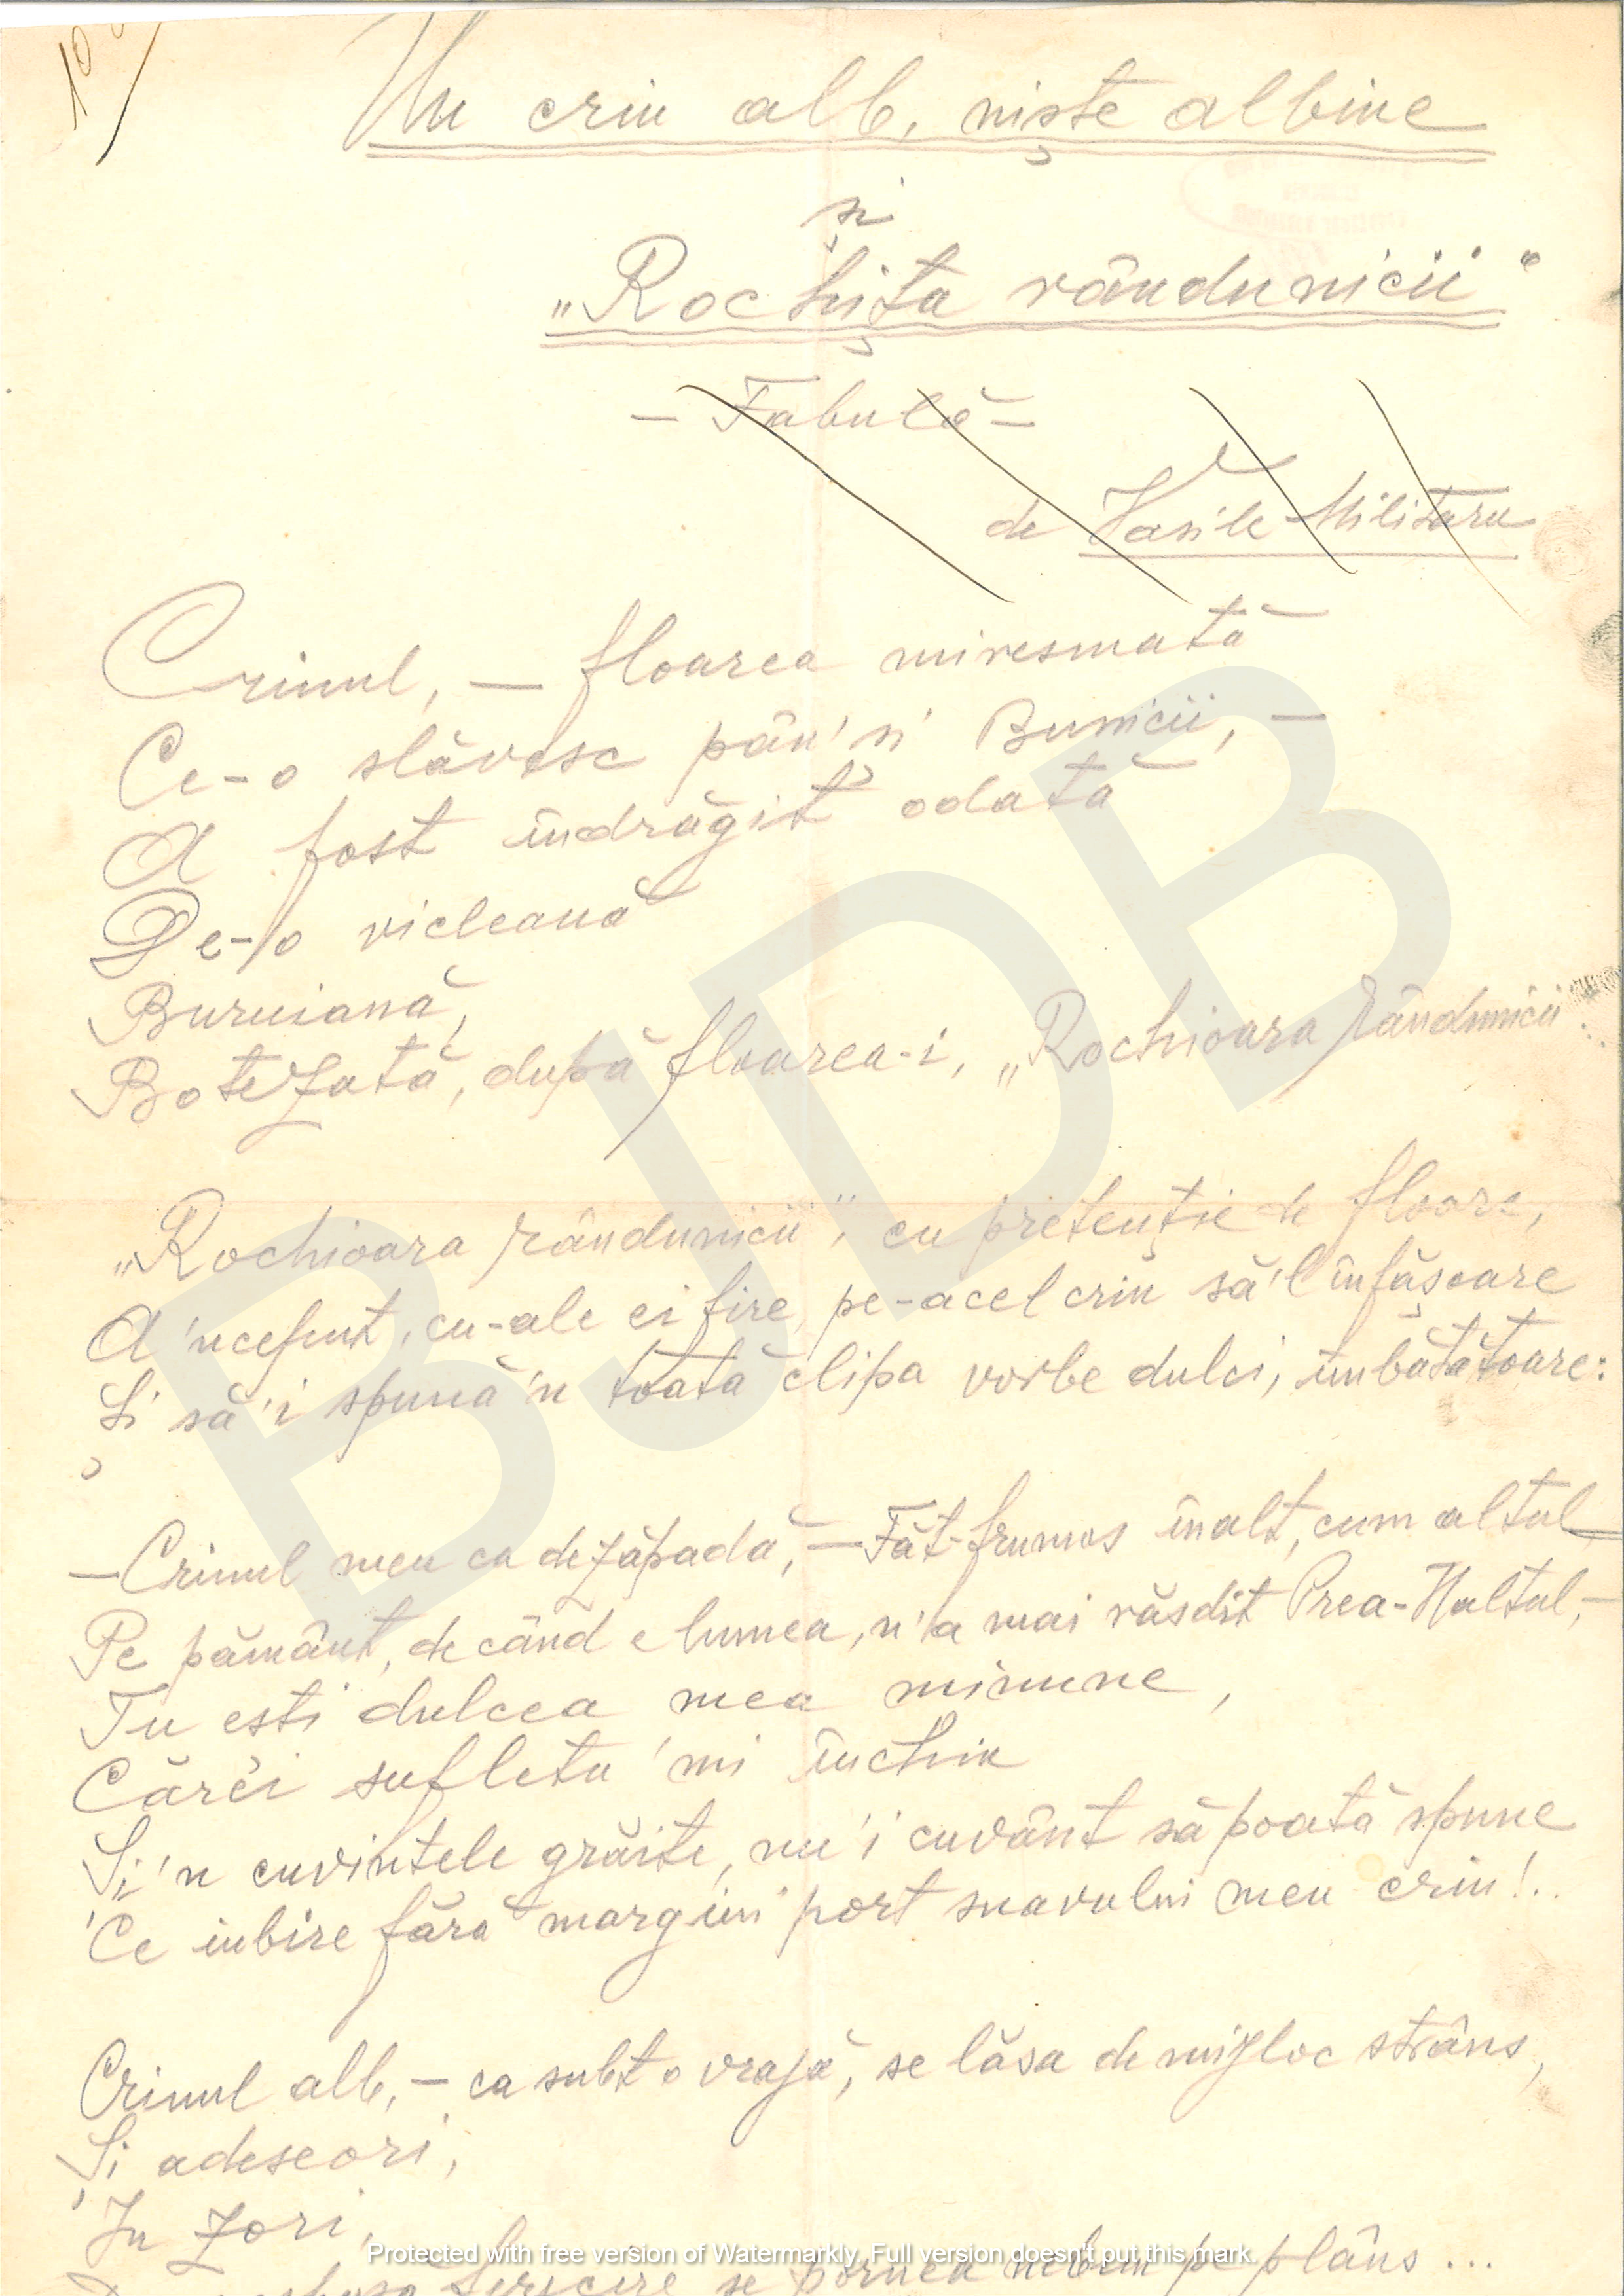 10
Un crin alb, niște albine
și
„Rochița rândunicii”
— Fabulă —
de Vasile Militaru
Crinul, — floarea miresmată
Ce-o slăvesc pân' și Bunicii, —
A fost îndrăgit odată
De-o vicleană
Buruiană,
Botezată, după floarea-i, „Rochioara rândunicii”.
„Rochioara rândunicii”, cu pretenție de floare,
A 'nceput, cu-ale ei fire, pe-acel crin să'l înfășoare
Și să'i spună 'n toată clipa vorbe dulci, îmbătătoare:
— Crinul meu ca de zăpadă, — Făt-frumos înalt, cum altul
Pe pământ, de când e lumea, n'a mai răsdit Prea-Naltul, —
Tu ești dulcea mea minune,
Cărei sufletu 'mi închin
Și 'n cuvintele grăite, nu'i cuvânt să poată spune
Ce iubire fără margini port suavului meu crin!..
Crinul alb, — ca subt o vrajă, se lăsa de mijloc strâns,
Și adeseori,
In zori,
fericire se pornea nebun pe plâns ...
BJDB
Protected with free version of Watermarkly. Full version doesn't put this mark.